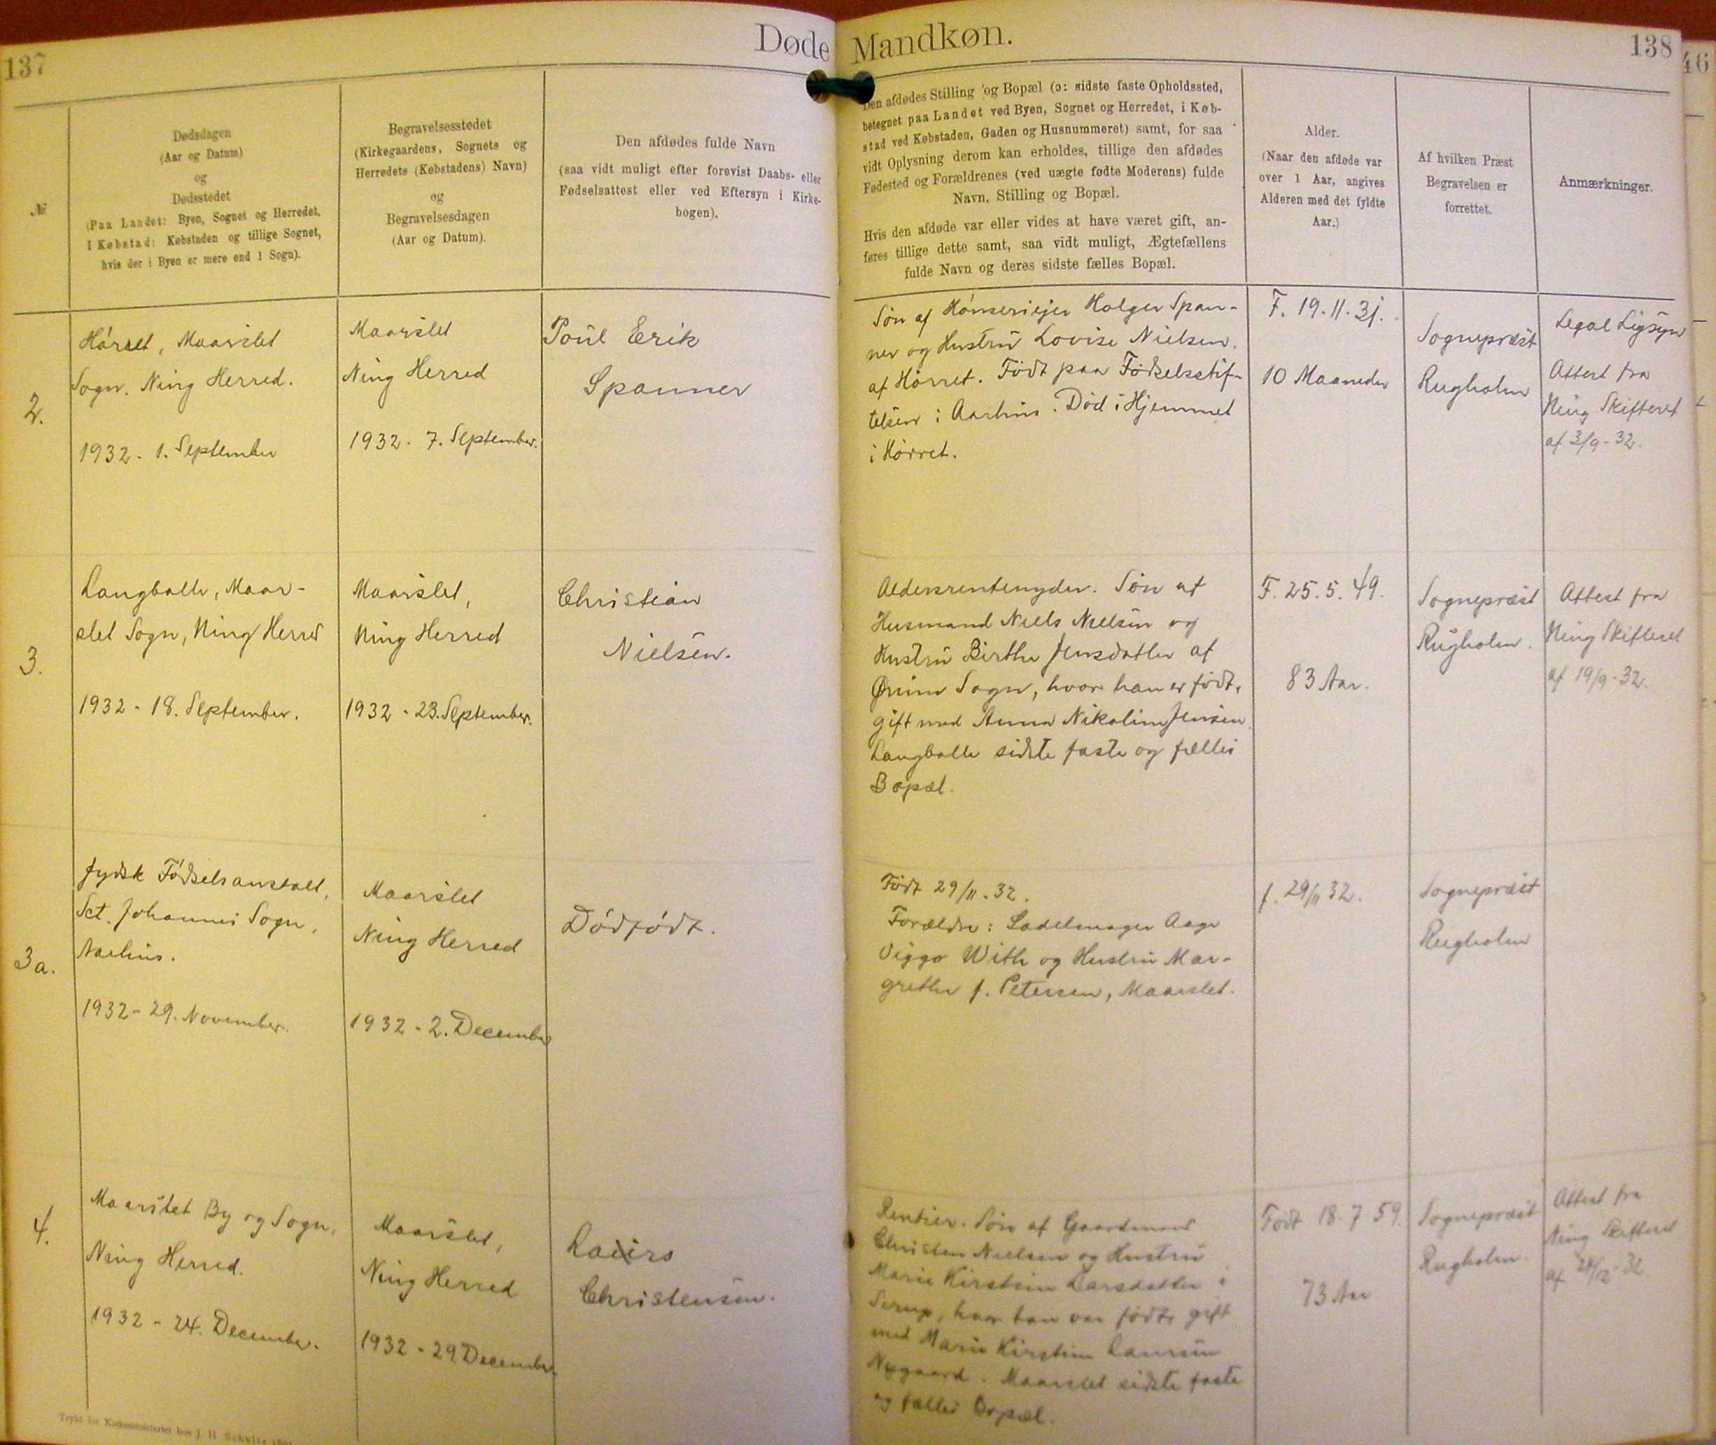 137
Døde Mandkøn.
138
46
№
Dødsdagen
(Aar og Datum)
og
Dødsstedet
(Paa Landet: Byen, Sognet og Herredet,
I Købstad: Købstaden og tillige Sognet,
hvis der i Byen er mere end 1 Sogn).
Begravelsesstedet
(Kirkegaardens, Sognets og
Herredets (Købstadens) Navn)
og
Begravelsesdagen
(Aar og Datum).
Den afdødes fulde Navn
(saa vidt muligt efter forevist Daabs- eller
Fødselsattest eller ved Eftersyn i Kirke-
bogen).
Den afdødes Stilling og Bopæl (ɔ: sidste faste Opholdssted,
betegnet paa Landet ved Byen, Sognet og Herredet, i Køb-
stad ved Købstaden, Gaden og Husnummeret) samt, for saa
vidt Oplysning derom kan erholdes, tillige den afdødes
Fødested og Forældrenes (ved uægte fødte Moderens) fulde
Navn, Stilling og Bopæl.
Hvis den afdøde var eller vides at have været gift, an-
føres tillige dette samt, saa vidt muligt, Ægtefællens
fulde Navn og deres sidste fælles Bopæl.
Alder.
(Naar den afdøde var
over 1 Aar, angives
Alderen med det fyldte
Aar.)
Af hvilken Præst
Begravelsen er
forrettet.
Anmærkninger.
2.
Hørret, Maarslet
Sogn. Ning Herred.
1932 - 1. September
Maarslet
Ning Herred
1932 - 7. September.
Poul Erik
Spanner
Søn af Hønseriejer Holger Span-
ner og Hustru Lovise Nielsen.
af Hørret. Født paa Fødselsstif-
telsen i Aarhus. Død i Hjemmet
i Hørret.
F. 19.11.31.
10 Maaneder
Sognepræst
Rugholm
Legal Ligsyn
Attest fra
Ning Skifteret
af 3/9-32.
3.
Langballe, Maar-
slet Sogn, Ning Herred
1932 - 18. September.
Maarslet,
Ning Herred
1932 - 23. September.
Christian
Nielsen.
Aldersrentenyder. Søn af
Husmand Niels Nielsen og
Hustru Birthe Jensdatter af
Sogn, hvor han er født,
gift med Anna Nikoline Jensen.
Langballe sidste faste og fælles
Bopæl.
F. 25.5.49.
83 Aar.
Sognepræst
Rugholm.
Attest fra
Ning Skifteret
af 19/9-32.
3a.
Jydsk Fødselsanstalt,
Sct. Johannes Sogn,
Aarhus.
1932 - 29. November.
Maarslet
Ning Herred
1932 - 2. December
Dødfødt.
Født 29/11.32.
Forældre: Sadelmager Aage
Viggo With og Hustru Mar-
grethe f. Petersen, Maarslet.
f. 29/11 32.
Sognepræst
Rugholm
4.
Maarslet By og Sogn,
Ning Herred.
1932 - 24. December.
Maarslet,
Ning Herred
1932 - 29 December
Christensen.
Rentier. Søn af Gaardmand
Christen Nielsen og Hustru
Marie Kirstine Larsdatter i
Serup, hvor han var født, gift
med Marie Kirstine Laursen
Nygaard. Maarslet sidste faste
og fælles Bopæl.
Født 18.7 59.
73 Aar
Sognepræst
Rugholm.
Attest fra
Ning Skifteret
af 24/12-32
Trykt for Kirkeministeriet hos J. H. Schultz